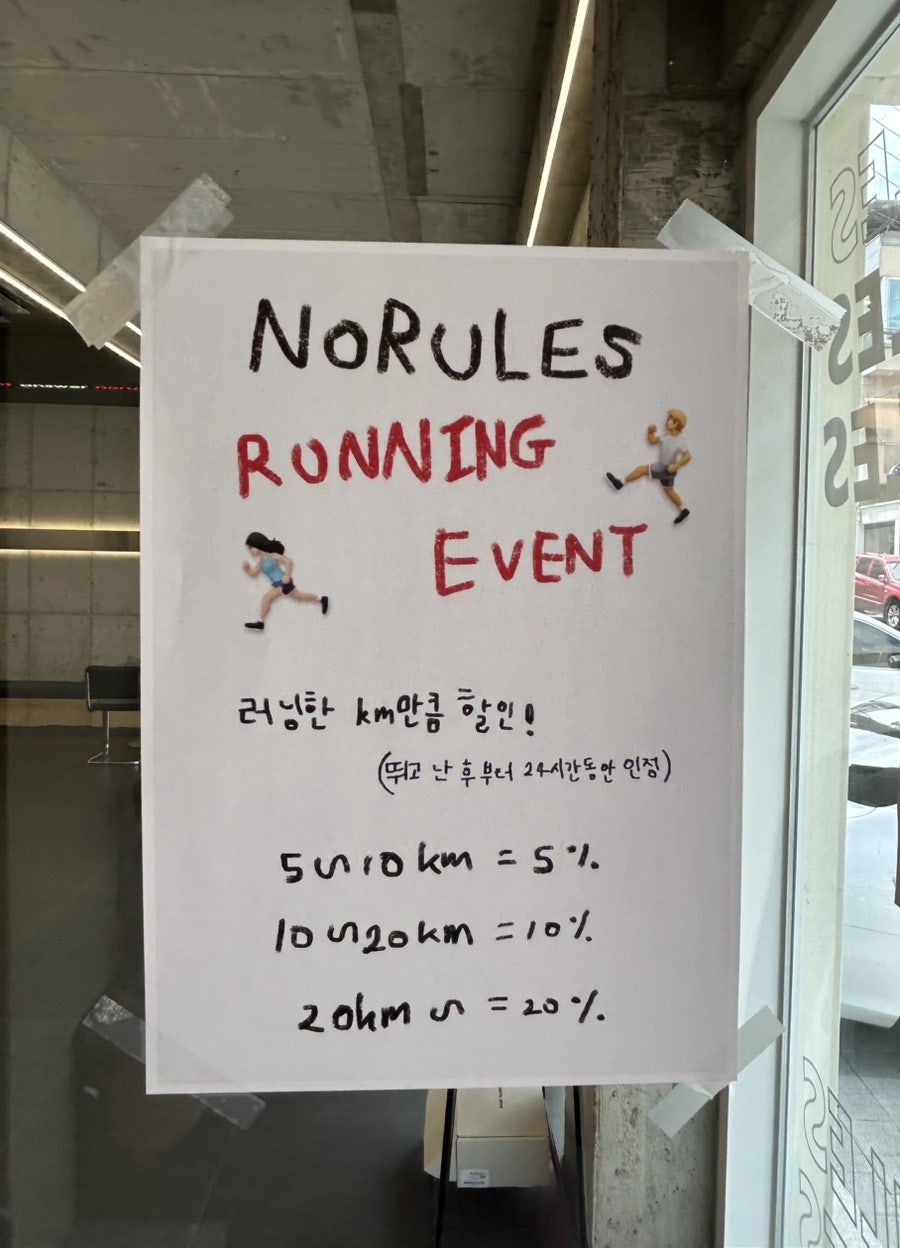 NoRULES
RUNNING
EVENT
러닝한 km만큼 할인!
(뛰고 난 후부터 24시간동안 인정)
5~10km = 5%
10~20km = 10%
20km~ = 20%
answer